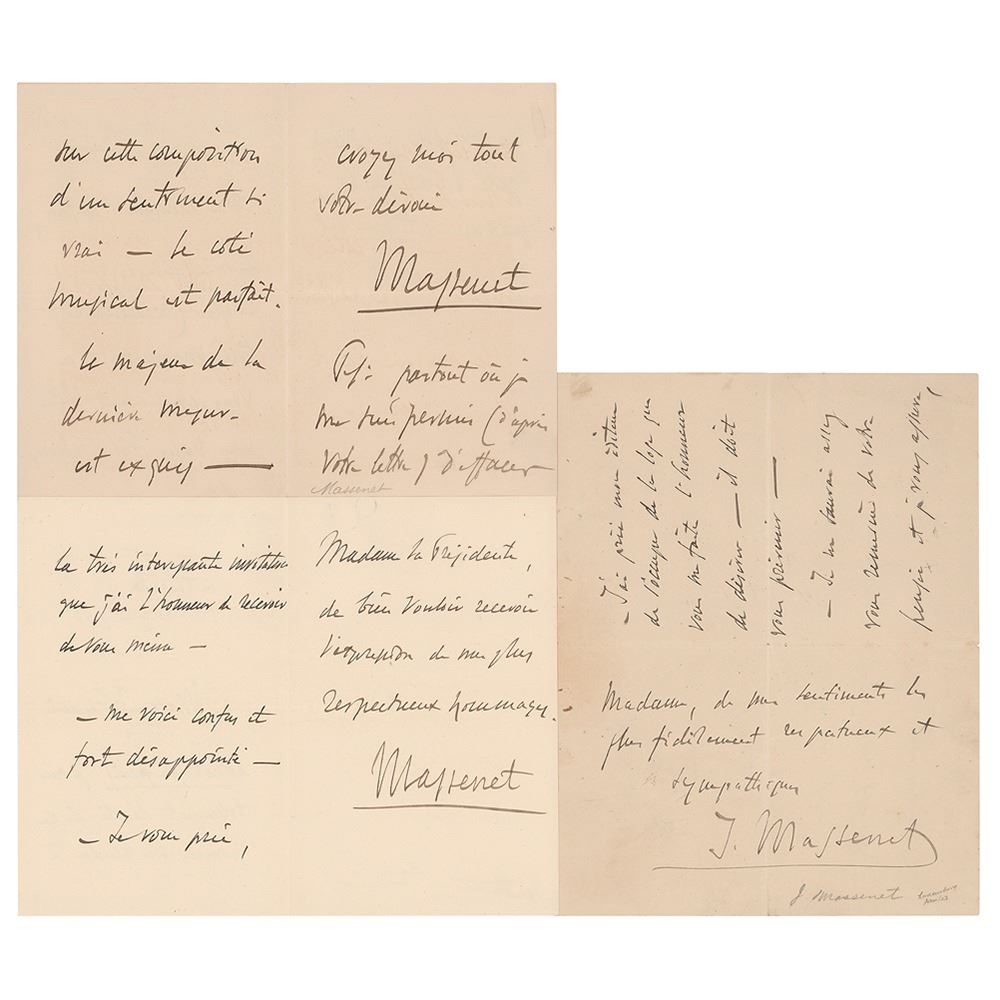 sur cette composition
d'un sentiment si
vrai — le coté
musical est parfait.
le majeur de la
dernière mesure
est exquis —
croyez moi tout
votre dévoué
Massenet
P.S. partout où je
me suis permis (d'après
votre lettre) d'effacer
Massenet
la très intéressante invitation
que j'ai l'honneur de recevoir
de vous même —
— me voici confus et
fort désappointé —
— Je vous prie,
Madame la Présidente,
de bien vouloir recevoir
l'expression de mes plus
respectueux hommages.
Massenet
— J'ai prié mon éditeur
de s'occuper de la loge que
vous me faites l'honneur
de désirer — il doit
vous prévenir —
— Je ne saurai assez
vous remercier de votre
pensée et je vous assure,
Madame, de mes sentiments les
plus fidèlement respectueux et
sympathiques
J. Massenet
J. Massenet